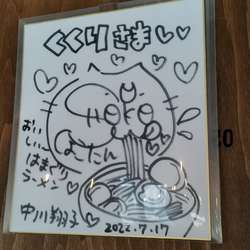 くくりさまい
しょこたん
おいしいー
はまぐり
ラーメン
中川翔子
2022.7.17